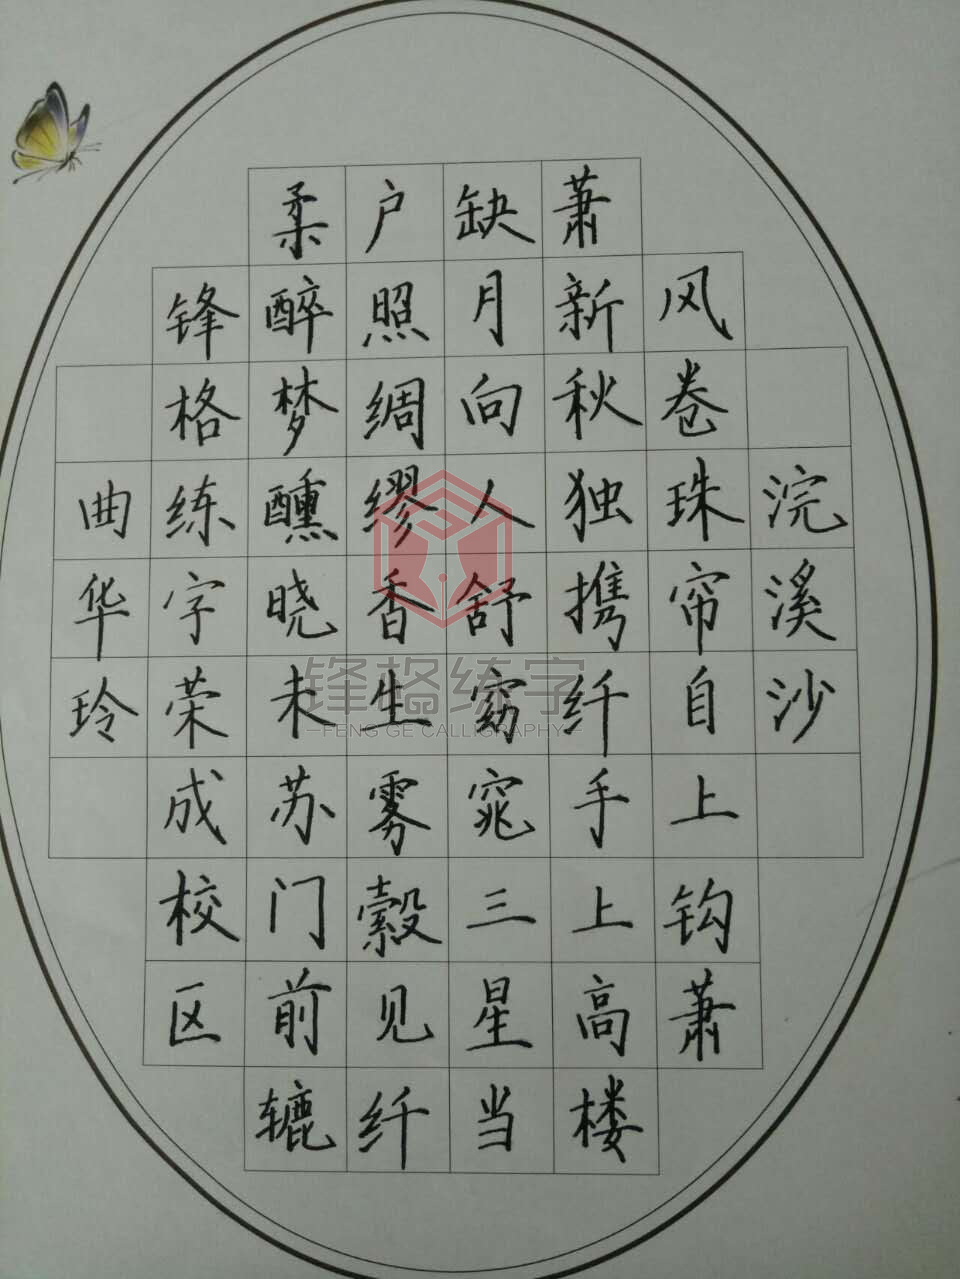 浣溪沙
风卷珠帘自上钩萧
萧新秋独携纤手上高楼
缺月向人舒窈窕三星当
户照绸缪香生雾縠见纤
柔醉梦醺晓未苏门前辘
锋格练字荣成校区
曲华玲
锋格练字
—FENG GE CALLIGRAPHY—